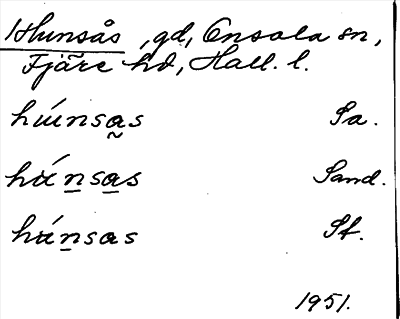 Hunsås, gd, Onsala sn,
Fjäre hd, Hall. l.
húnsa̰s Sa.
hᵾ́n̲sa̲s Sand.
hᵾ́n̲sas Sf.
1951.